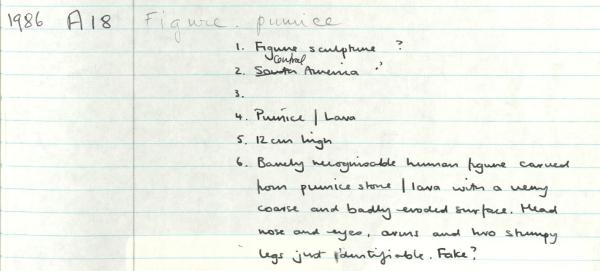 1986 A18 Figure. pumice
1. Figure sculpture ?
Central
2. South America ?
3.
4. Pumice / Lava
5. 12 cm high
6. Barely recognisable human figure carved
from pumice stone / lava with a very
coarse and badly eroded surface. Head
nose and eyes, arms and two stumpy
legs just identifiable. Fake?